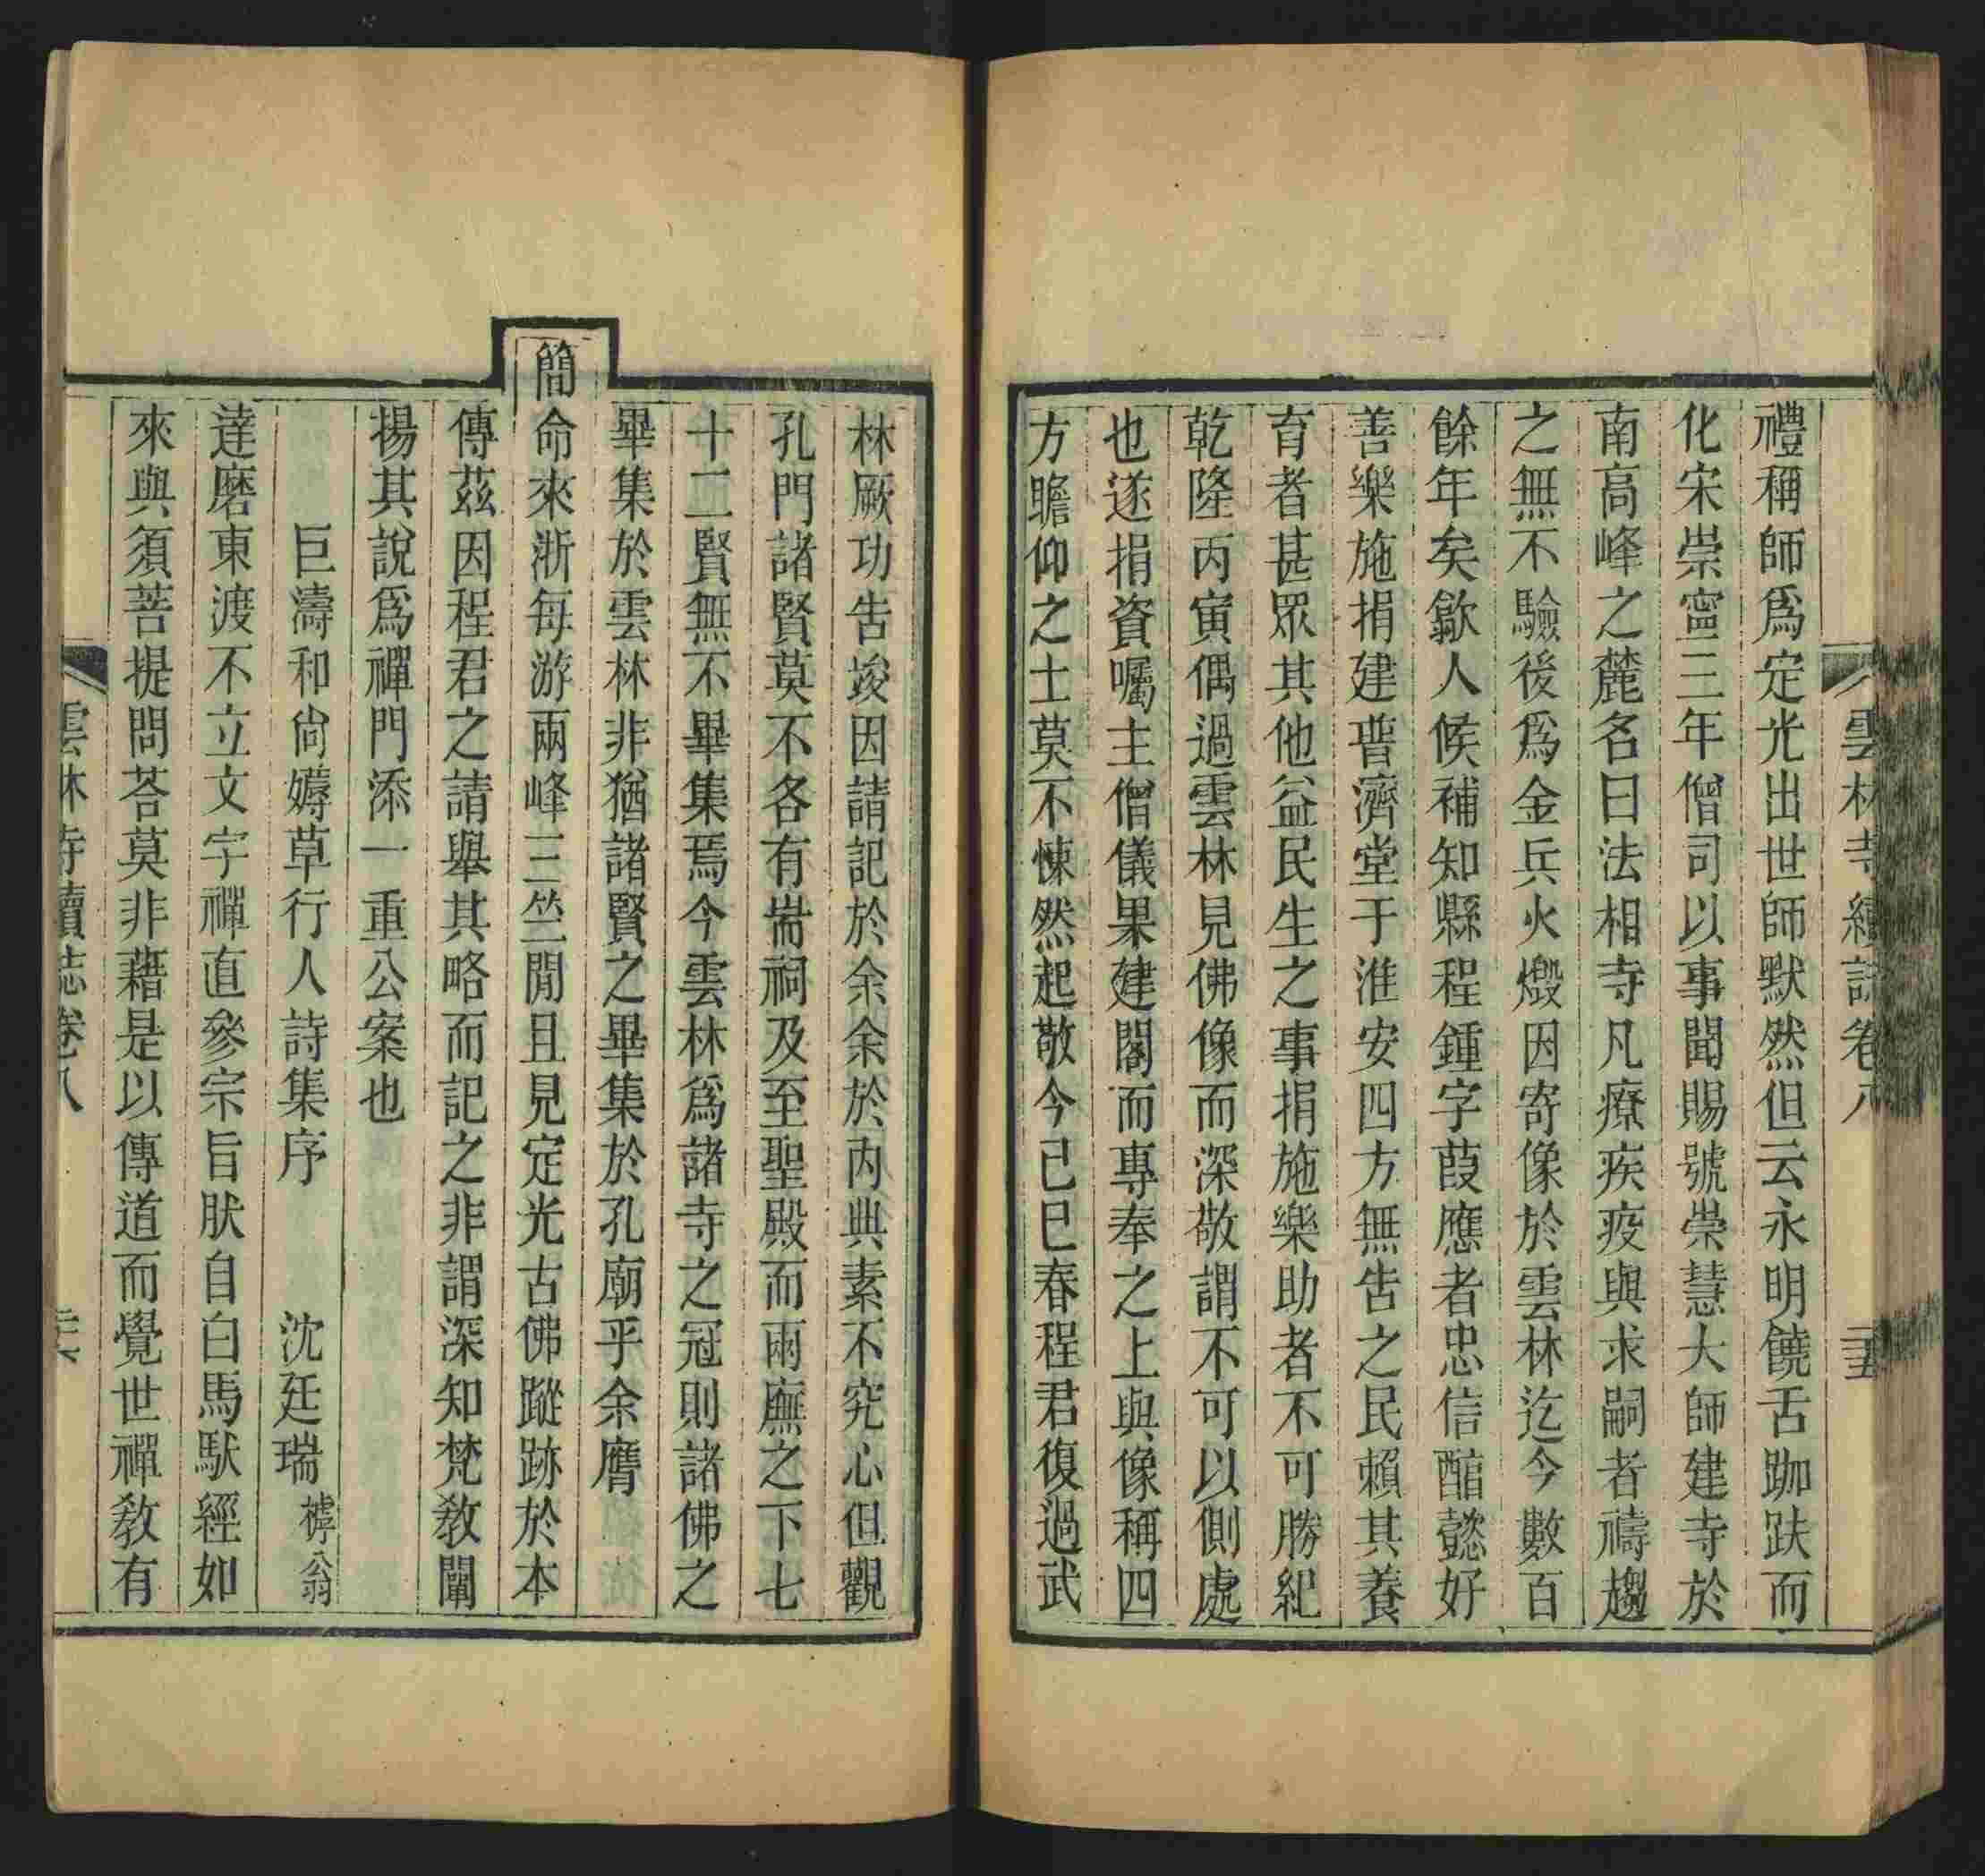 雲林寺續誌卷八
禮稱師爲定光出世師默然但云永明饒舌跏趺而
化宋崇寧三年僧司以事聞賜號崇慧大師建寺於
南高峰之麓名曰法相寺凡療疾疫與求嗣者禱趨
之無不驗後爲金兵火燬因寄像於雲林迄今數百
餘年矣歙人候補知縣程鍾字葭應者忠信醅懿好
善樂施捐建普濟堂于淮安四方無告之民賴其養
育者甚眾其他益民生之事捐施樂助者不可勝紀
乾隆丙寅偶過雲林見佛像而深敬謂不可以側處
也遂捐資囑主僧儀果建閣而專奉之上與像稱四
方瞻仰之士莫不悚然起敬今己巳春程君復過武
林厥功告竣因請記於余余於內典素不究心但觀
孔門諸賢莫不各有耑祠及至聖殿而兩廡之下七
十二賢無不畢集焉今雲林爲諸寺之冠則諸佛之
畢集於雲林非猶諸賢之畢集於孔廟乎余膺
簡命來浙每游兩峰三竺閒且見定光古佛蹤跡於本
傳茲因程君之請舉其略而記之非謂深知梵敎闡
揚其說爲禪門添一重公案也
巨濤和尙嫮草行人詩集序　沈廷瑞樗翁
達磨東渡不立文字禪直參宗旨肰自白馬馱經如
來與須菩提問荅莫非藉是以傳道而覺世禪敎有
雲林寺續誌卷八